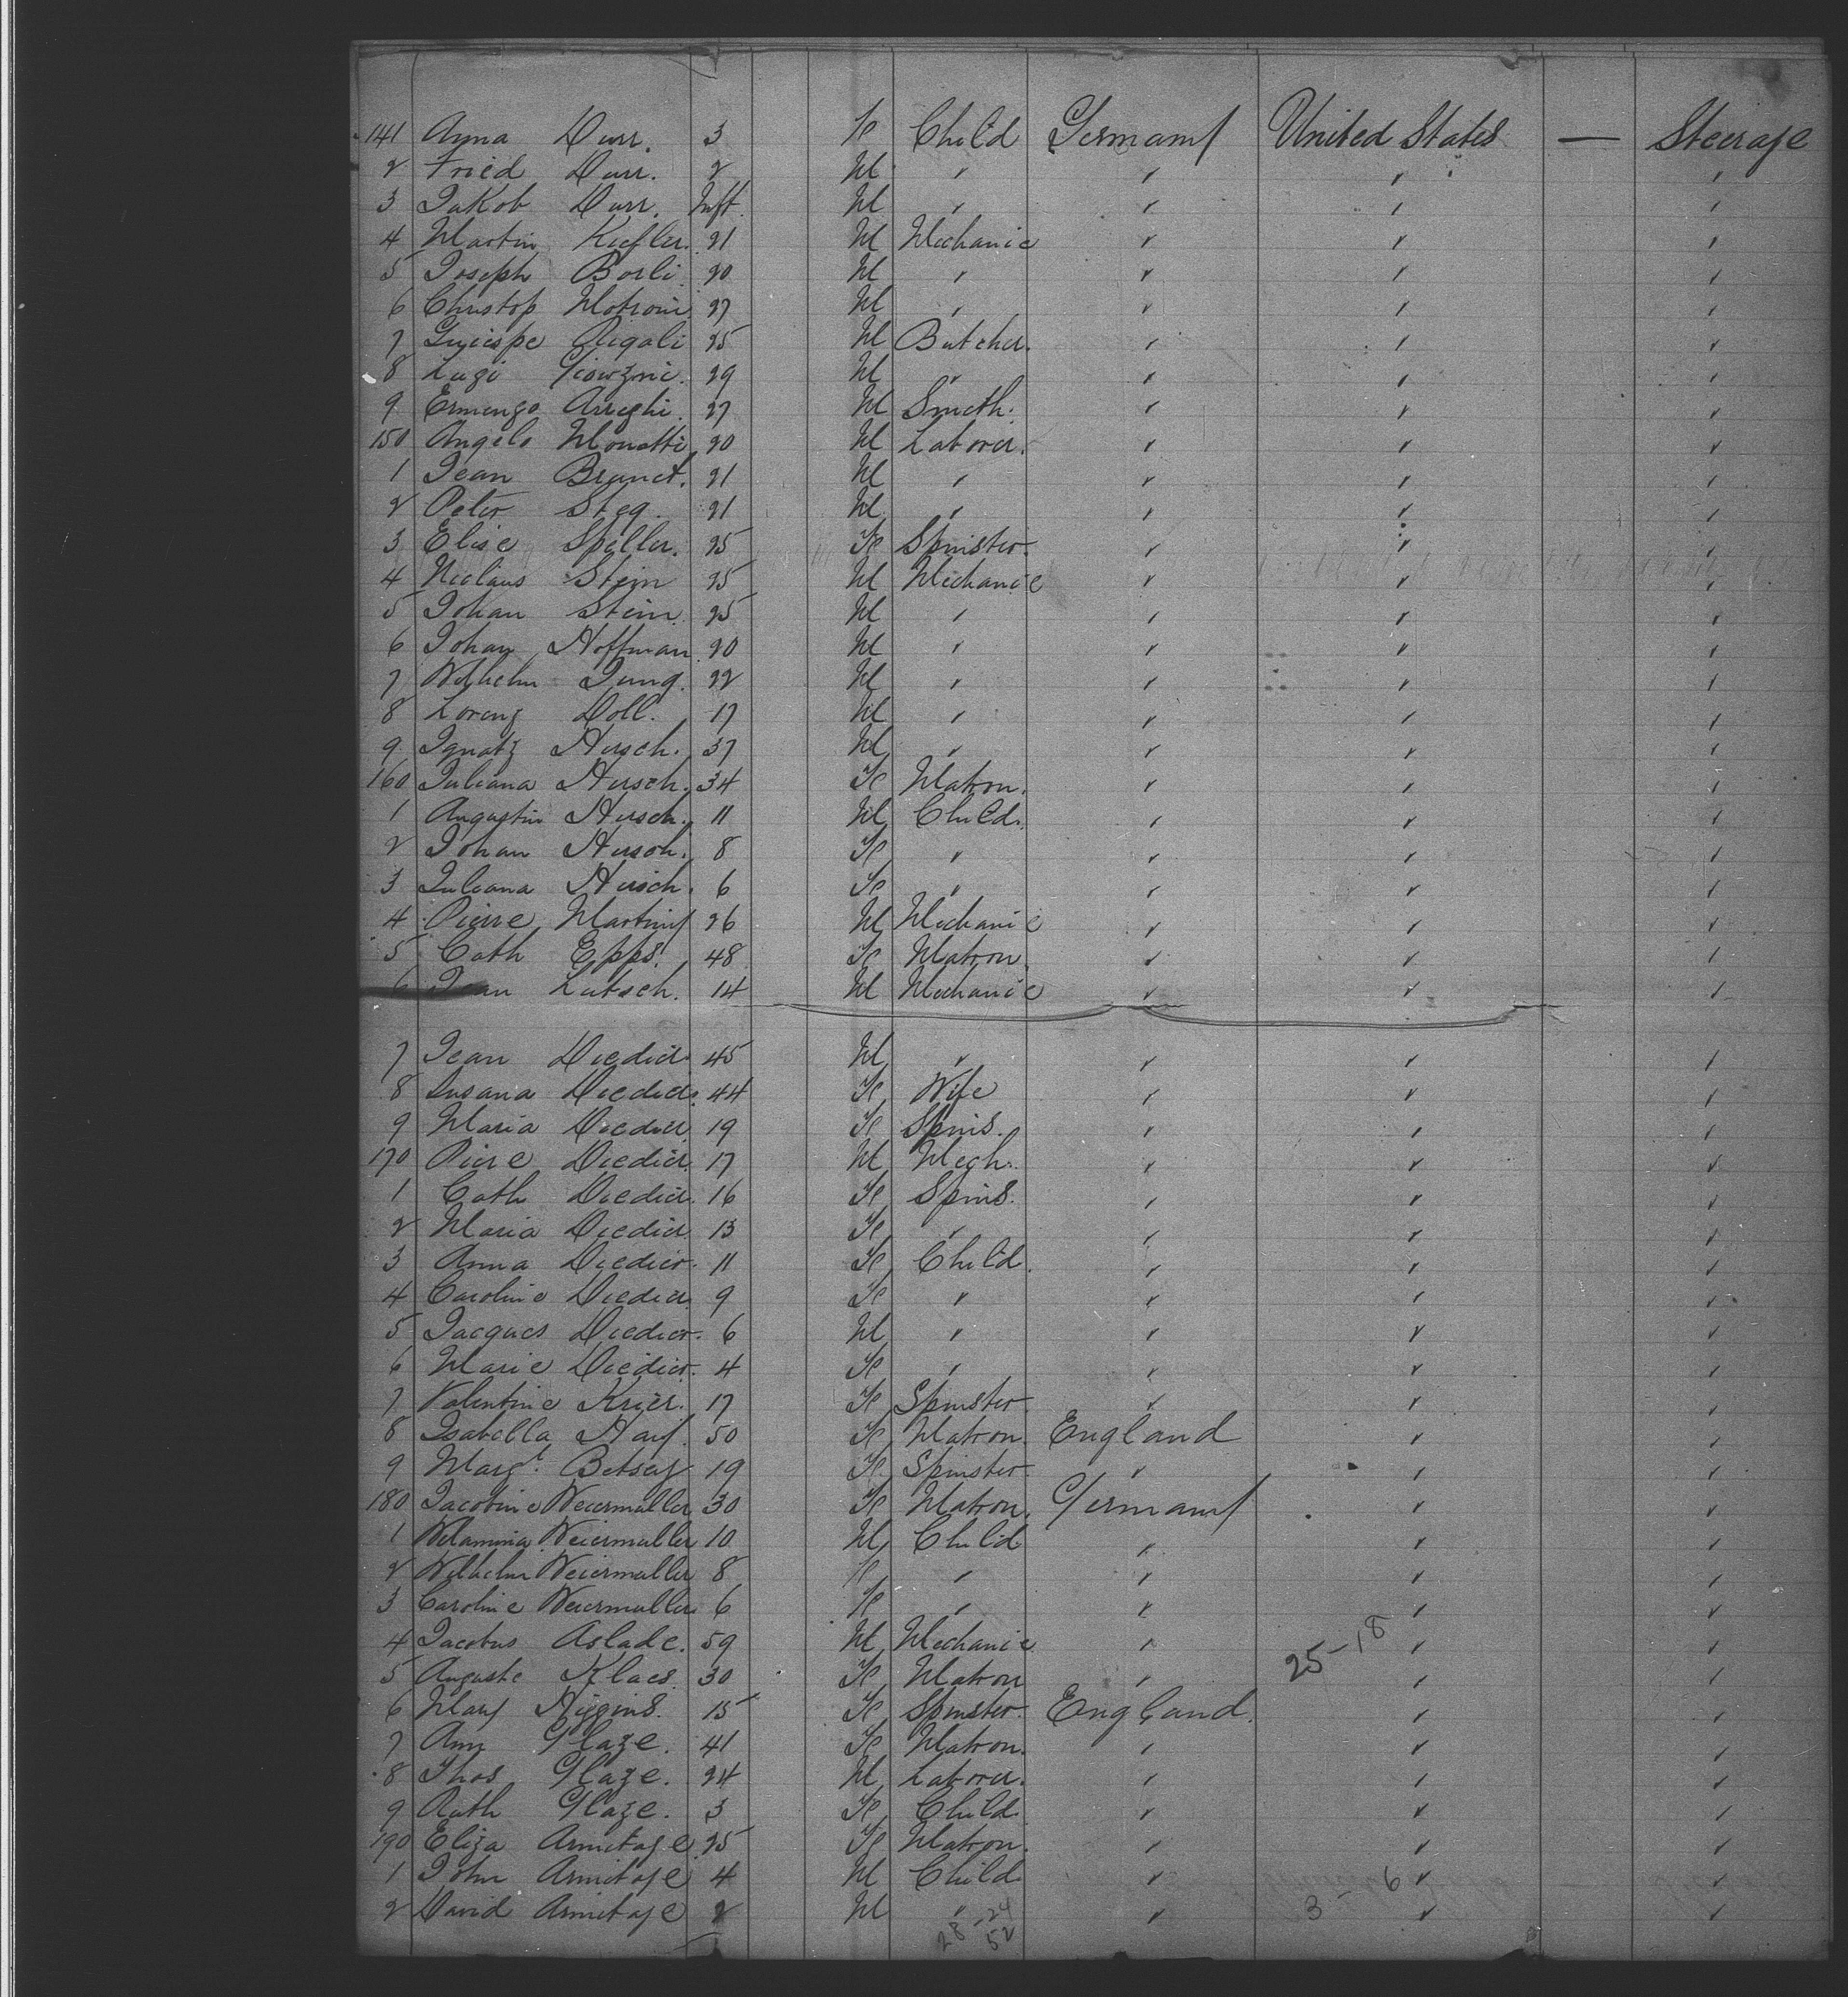 141 Anna Durr. 3 Fe Child Germany United States — Steerage
2 Fried Durr. 2 M " " " "
3 Jakob Durr. Inft. M " " " "
4 Martin Kiefler. 21 M Mechanic " " "
5 Joseph Borli 20 M " " " "
6 Christop Motroni 27 M " " " "
7 Guiespe Rigali 25 M Butcher. " " "
8 Luzi 29 M " " " "
9 Ermengo Arreghi. 27 M Smith. " " "
150 Angelo Monatti 20 M Laborer. " " "
1 Jean Brunet. 21 M " " " "
2 Peter Steg. 21 M " " " "
3 Elise Speller. 25 Fe Spinster. " " "
4 Niclaus Stein 25 M Mechanic " " "
5 Johan Stein. 25 M " " " "
6 Johan Hoffman 20 M " " " "
7 Wilhelm Jung. 22 M " " " "
8 Lorenz Doll. 17 M " " " "
9 Ignatz Hirsch. 37 M " " " "
160 Juliana Hirsch. 34 Fe Matron. " " "
1 Augustin Hirsch. 11 M Child. " " "
2 Johan Hirsch. 8 Fe " " " "
3 Juliana Hirsch. 6 Fe " " " "
4 Pierre Martiny 26 M Mechanic " " "
5 Cath Epps. 48 Fe Matron. " " "
6 Jean Lutsch. 14 M Mechanic " " "
7 Jean Diedier 45 M " " " "
8 Susana Diedier. 44 Fe Wife " " "
9 Maria Diedier 19 Fe Spins. " " "
170 Piere Diedier. 17 M Mech. " " "
1 Cath Diedier. 16 Fe Spins. " " "
2 Maria Diedier 13 Fe " " " "
3 Anna Diedier. 11 Fe Child. " " "
4 Caroline Diedier. 9 Fe " " " "
5 Jacques Diedier. 6 M " " " "
6 Marie Diedier. 4 Fe " " " "
7 Valentine Krier. 17 Fe Spinster " " "
8 Isabella Hay. 50 Fe Matron. England " "
9 Margt. Betsey 19 Fe Spinster. " " "
180 Jacobine Weiermuller 30 Fe Matron. Germany " "
1 Welamina Weiermuller 10 M Child " " "
2 Wilhelm Weiermuller 8 Fe " " " "
3 Caroline Weiermuller 6 Fe " " " "
4 Jacobus Aslade. 59 M Mechanic " " "
25-18
5 Auguste Klaes. 30 Fe Matron " " "
6 Mary Higgins. 15 Fe Spinster. England. " "
7 Ann Glaze. 41 Fe Matron. " " "
8 Thos Glaze. 24 M Laborer. " " "
9 Ruth Glaze. 3 Fe Child. " " "
190 Eliza Armitage 25 Fe Matron. " " "
1 John Armitage 4 M Child " " "
3 - 6
2 David Armitage 2 M " " " "
28 - 24
52